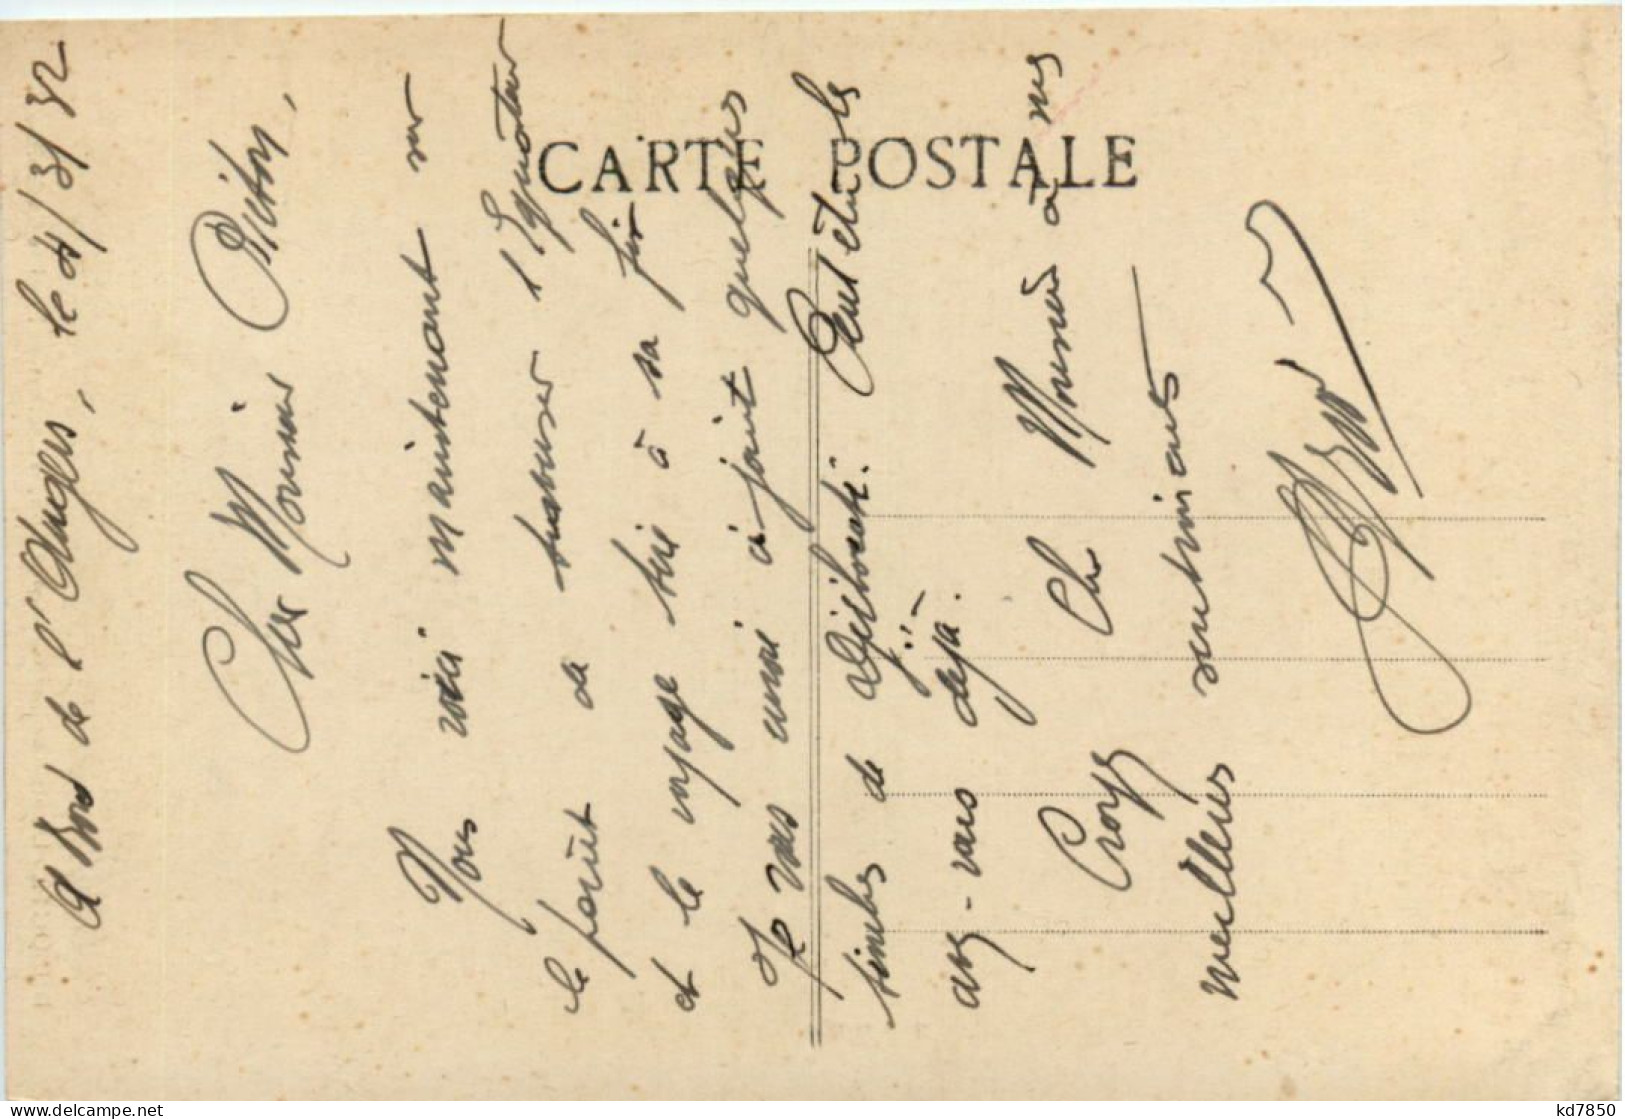 A Bord de l'Angers, le 4/3/32
Cher Monsieur
Nous voici maintenant sur
le point de traverser l'Equateur
et le voyage tire à sa fin
Je vous envoie ci-joint quelques
timbres de Djibouti. Peut être les
avez-vous déjà.
Croyez Cher Monsieur à mes
meilleurs sentiments
CARTE POSTALE
kd7850